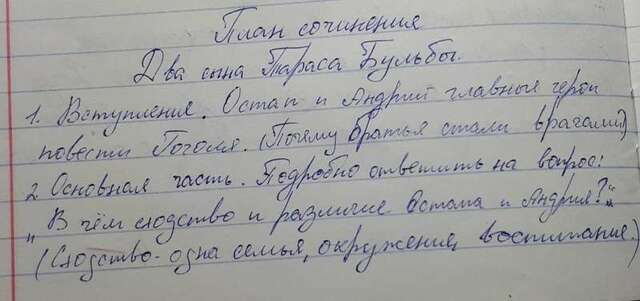 План сочинения
Два сына Тараса Бульбы.
1. Вступление. Остап и Андрий главные герои
повести Гоголя. (Почему братья стали врагами)
2 Основная часть. Подробно ответить на вопрос:
„В чём сходство и различие Остапа и Андрия?“
(Сходство - одна семья, окружения, воспитание.)